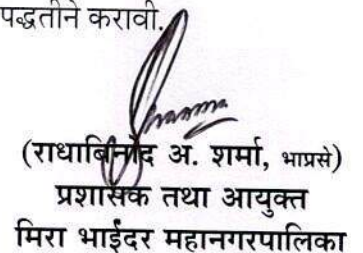 पद्धतीने करावी.
(राधाबिनोद अ. शर्मा, भाप्रसे)
प्रशासक तथा आयुक्त
मिरा भाईंदर महानगरपालिका